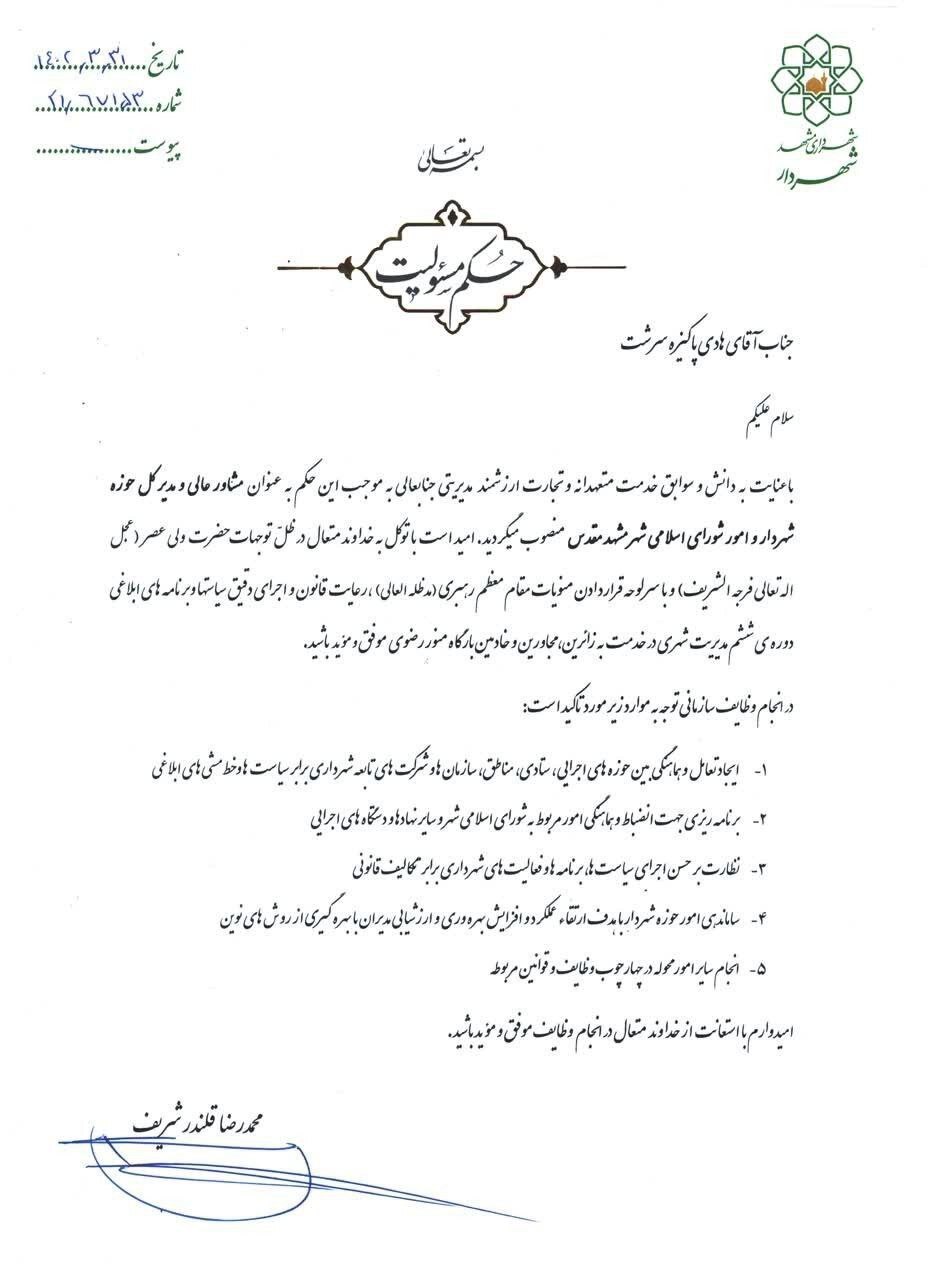 تاریخ ۱۴۰۲,۳,۳۱
شماره ۲۱,۶۷۱۵۳
پیوست
شهرداری مشهد
شهردار
بسمه تعالی
حکم مسئولیت
جناب آقای هادی پاکیزه سرشت
سلام علیکم
باعنایت به دانش و سوابق خدمت متعهدانه و تجارت ارزشمند مدیریتی جنابعالی به موجب این حکم به عنوان مشاور عالی و مدیر کل حوزه
شهردار و امور شورای اسلامی شهر مشهد مقدس منصوب میگردید. امید است با توکل به خداوند متعال در ظلّ توجهات حضرت ولی عصر (عجل
اله تعالی فرجه الشریف) و با سرلوحه قرار دادن منویات مقام معظم رهبری (مدظله العالی)، رعایت قانون و اجرای دقیق سیاستها و برنامه های ابلاغی
دوره ی ششم مدیریت شهری در خدمت به زائرین، مجاورین و خادمین بارگاه منور رضوی موفق و موید باشید.
در انجام وظایف سازمانی توجه به موارد زیر مورد تاکید است:
۱- ایجاد تعامل و هماهنگی بین حوزه های اجرایی، ستادی، مناطق، سازمان ها و شرکت های تابعه شهرداری برابر سیاست ها و خط مشی های ابلاغی
۲- برنامه ریزی جهت انضباط و هماهنگی امور مربوط به شورای اسلامی شهر و سایر نهادها و دستگاه های اجرایی
۳- نظارت بر حسن اجرای سیاست ها، برنامه ها و فعالیت های شهرداری برابر تکالیف قانونی
۴- ساماندهی امور حوزه شهردار با هدف ارتقاء عملکرد و افزایش بهره وری و ارزشیابی مدیران با بهره گیری از روش های نوین
۵- انجام سایر امور محوله در چهارچوب وظایف و قوانین مربوطه
امیدوارم با استعانت از خداوند متعال در انجام وظایف موفق و موید باشید.
محمدرضا قلندر شریف